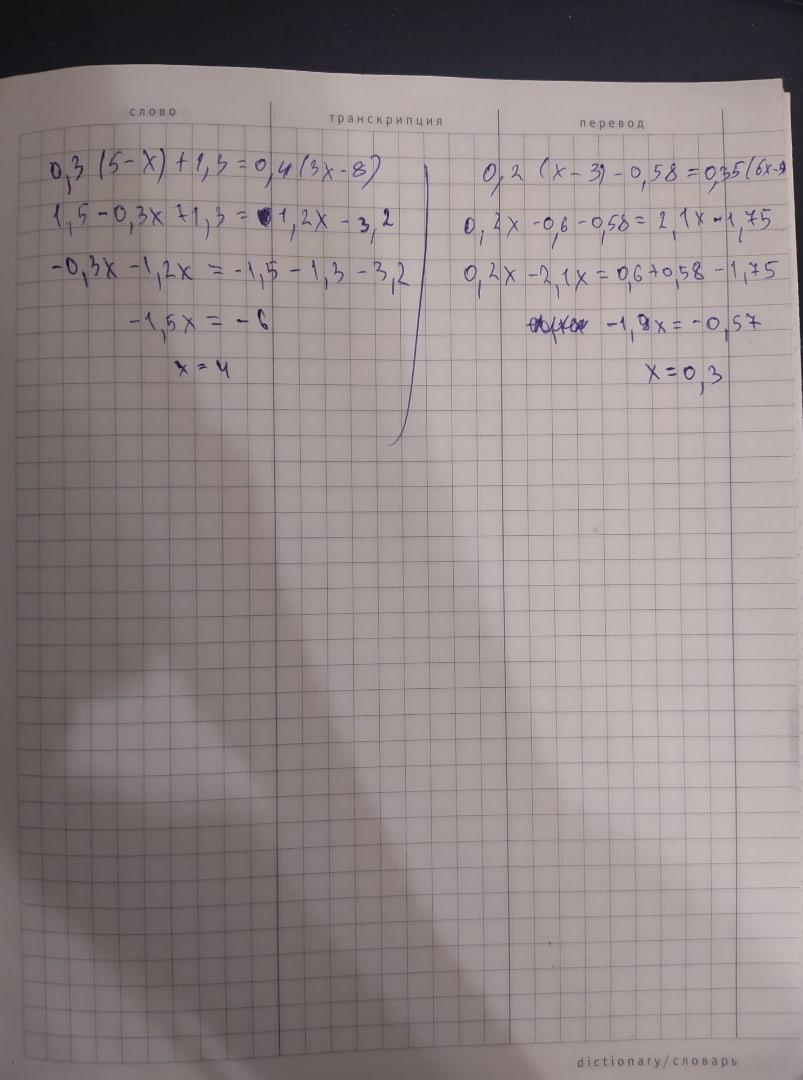 слово
транскрипция
перевод
0,3 (5-x) + 1,3 = 0,4 (3x-8)
1,5 - 0,3x + 1,3 = 1,2x - 3,2
-0,3x - 1,2x = -1,5 - 1,3 - 3,2
-1,5x = -6
x = 4
0,2 (x-3) - 0,58 = 0,35 (6x-
0,2x - 0,6 - 0,58 = 2,1x - 1,75
0,2x - 2,1x = 0,6 + 0,58 - 1,75
-1,9x = -0,57
x = 0,3
dictionary/словарь